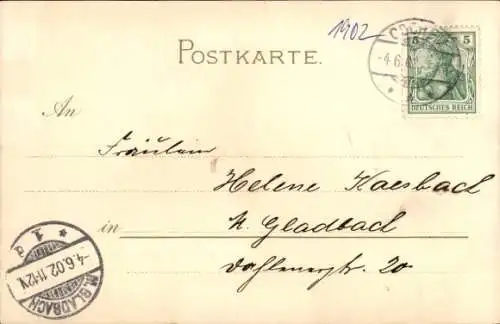 1902
POSTKARTE.
COCH
-4.6.02
5 5
DEUTSCHES REICH
An
Fräulein
Helene Kaesbach
in M. Gladbach
Dahlenerstr. 20
M. GLADBACH
-4.6.02.11-12V.
* 1 a